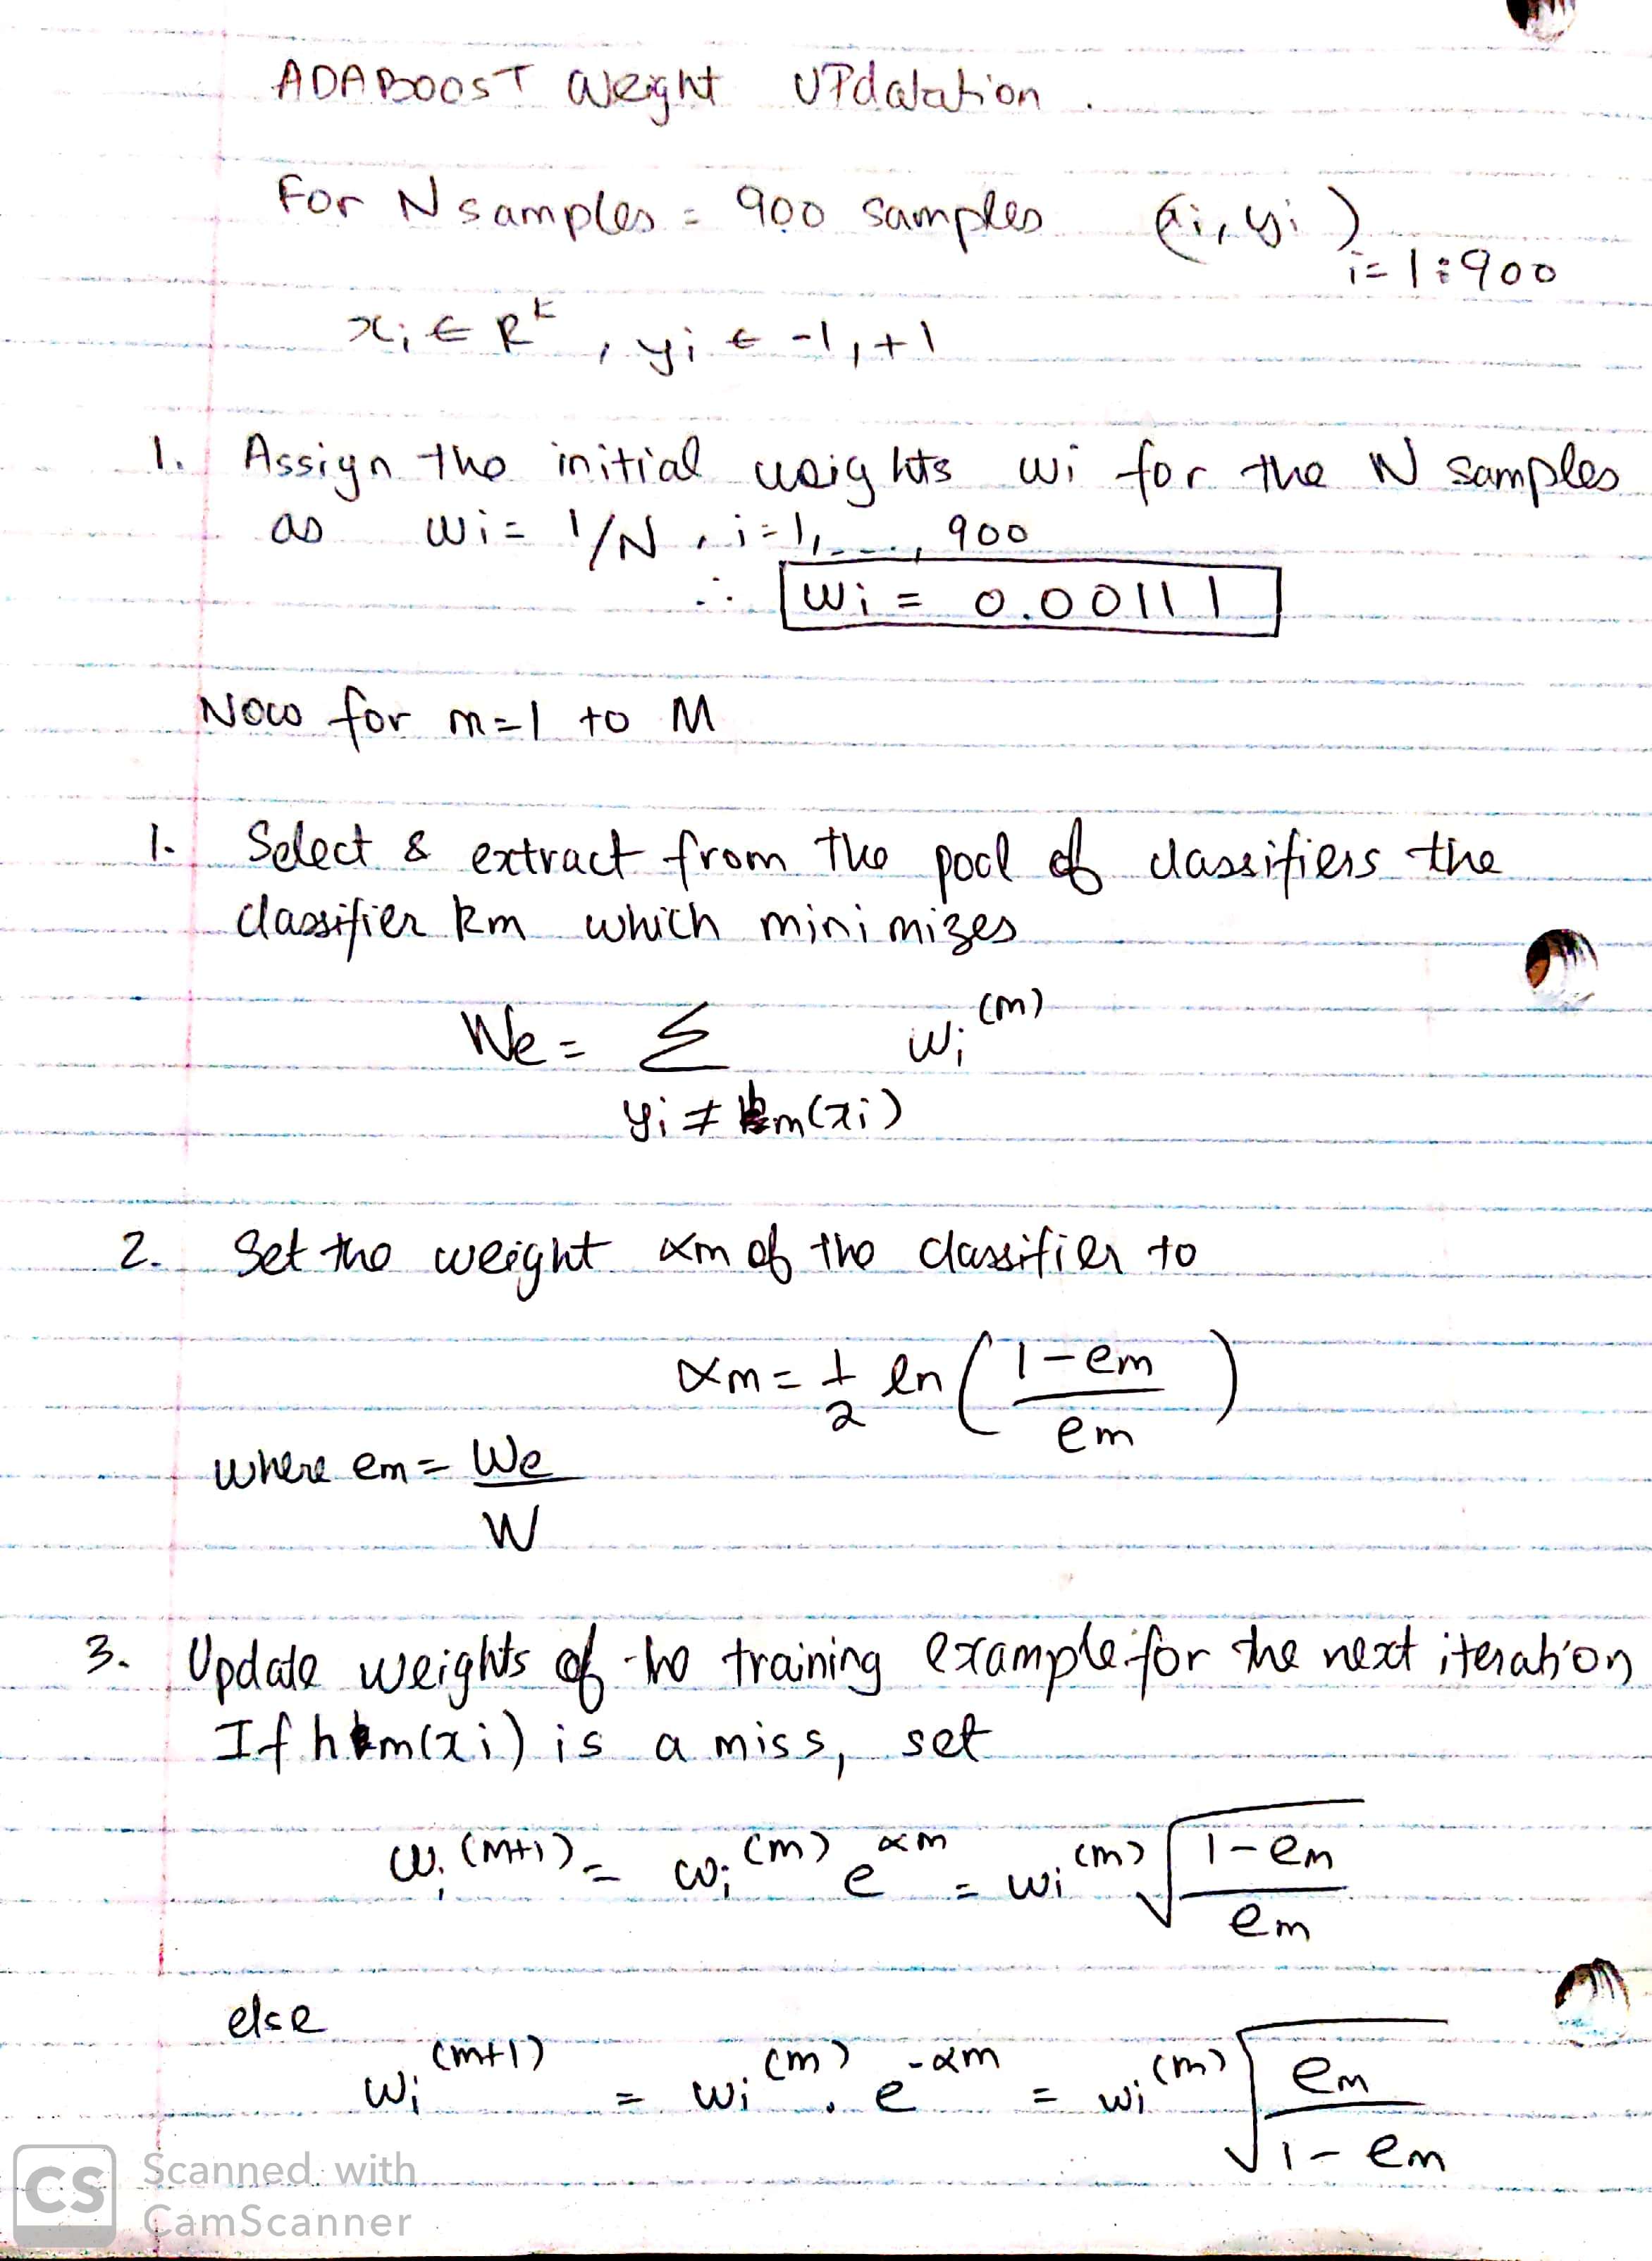 ADABOOST Weight UPdatation.
For N samples = 900 samples (xi, yi) i=1:900
xi ∈ R^k, yi ∈ -1, +1
1. Assign the initial weights wi for the N samples
as wi = 1/N, i=1,...., 900
∴ wi = 0.00111
Now for m=1 to M
1. Select & extract from the pool of classifiers the
classifier km which minimizes
We = Σ wi^(m)
yi ≠ hm(xi)
2. Set the weight αm of the classifier to
αm = 1/2 ln (1-em / em)
where em = We / W
3. Update weights of the training example for the next iteration
If hm(xi) is a miss, set
wi^(m+1) = wi^(m) e^αm = wi^(m) √(1-em / em)
else
wi^(m+1) = wi^(m) . e^-αm = wi^(m) √(em / 1-em)
CS Scanned with
CamScanner